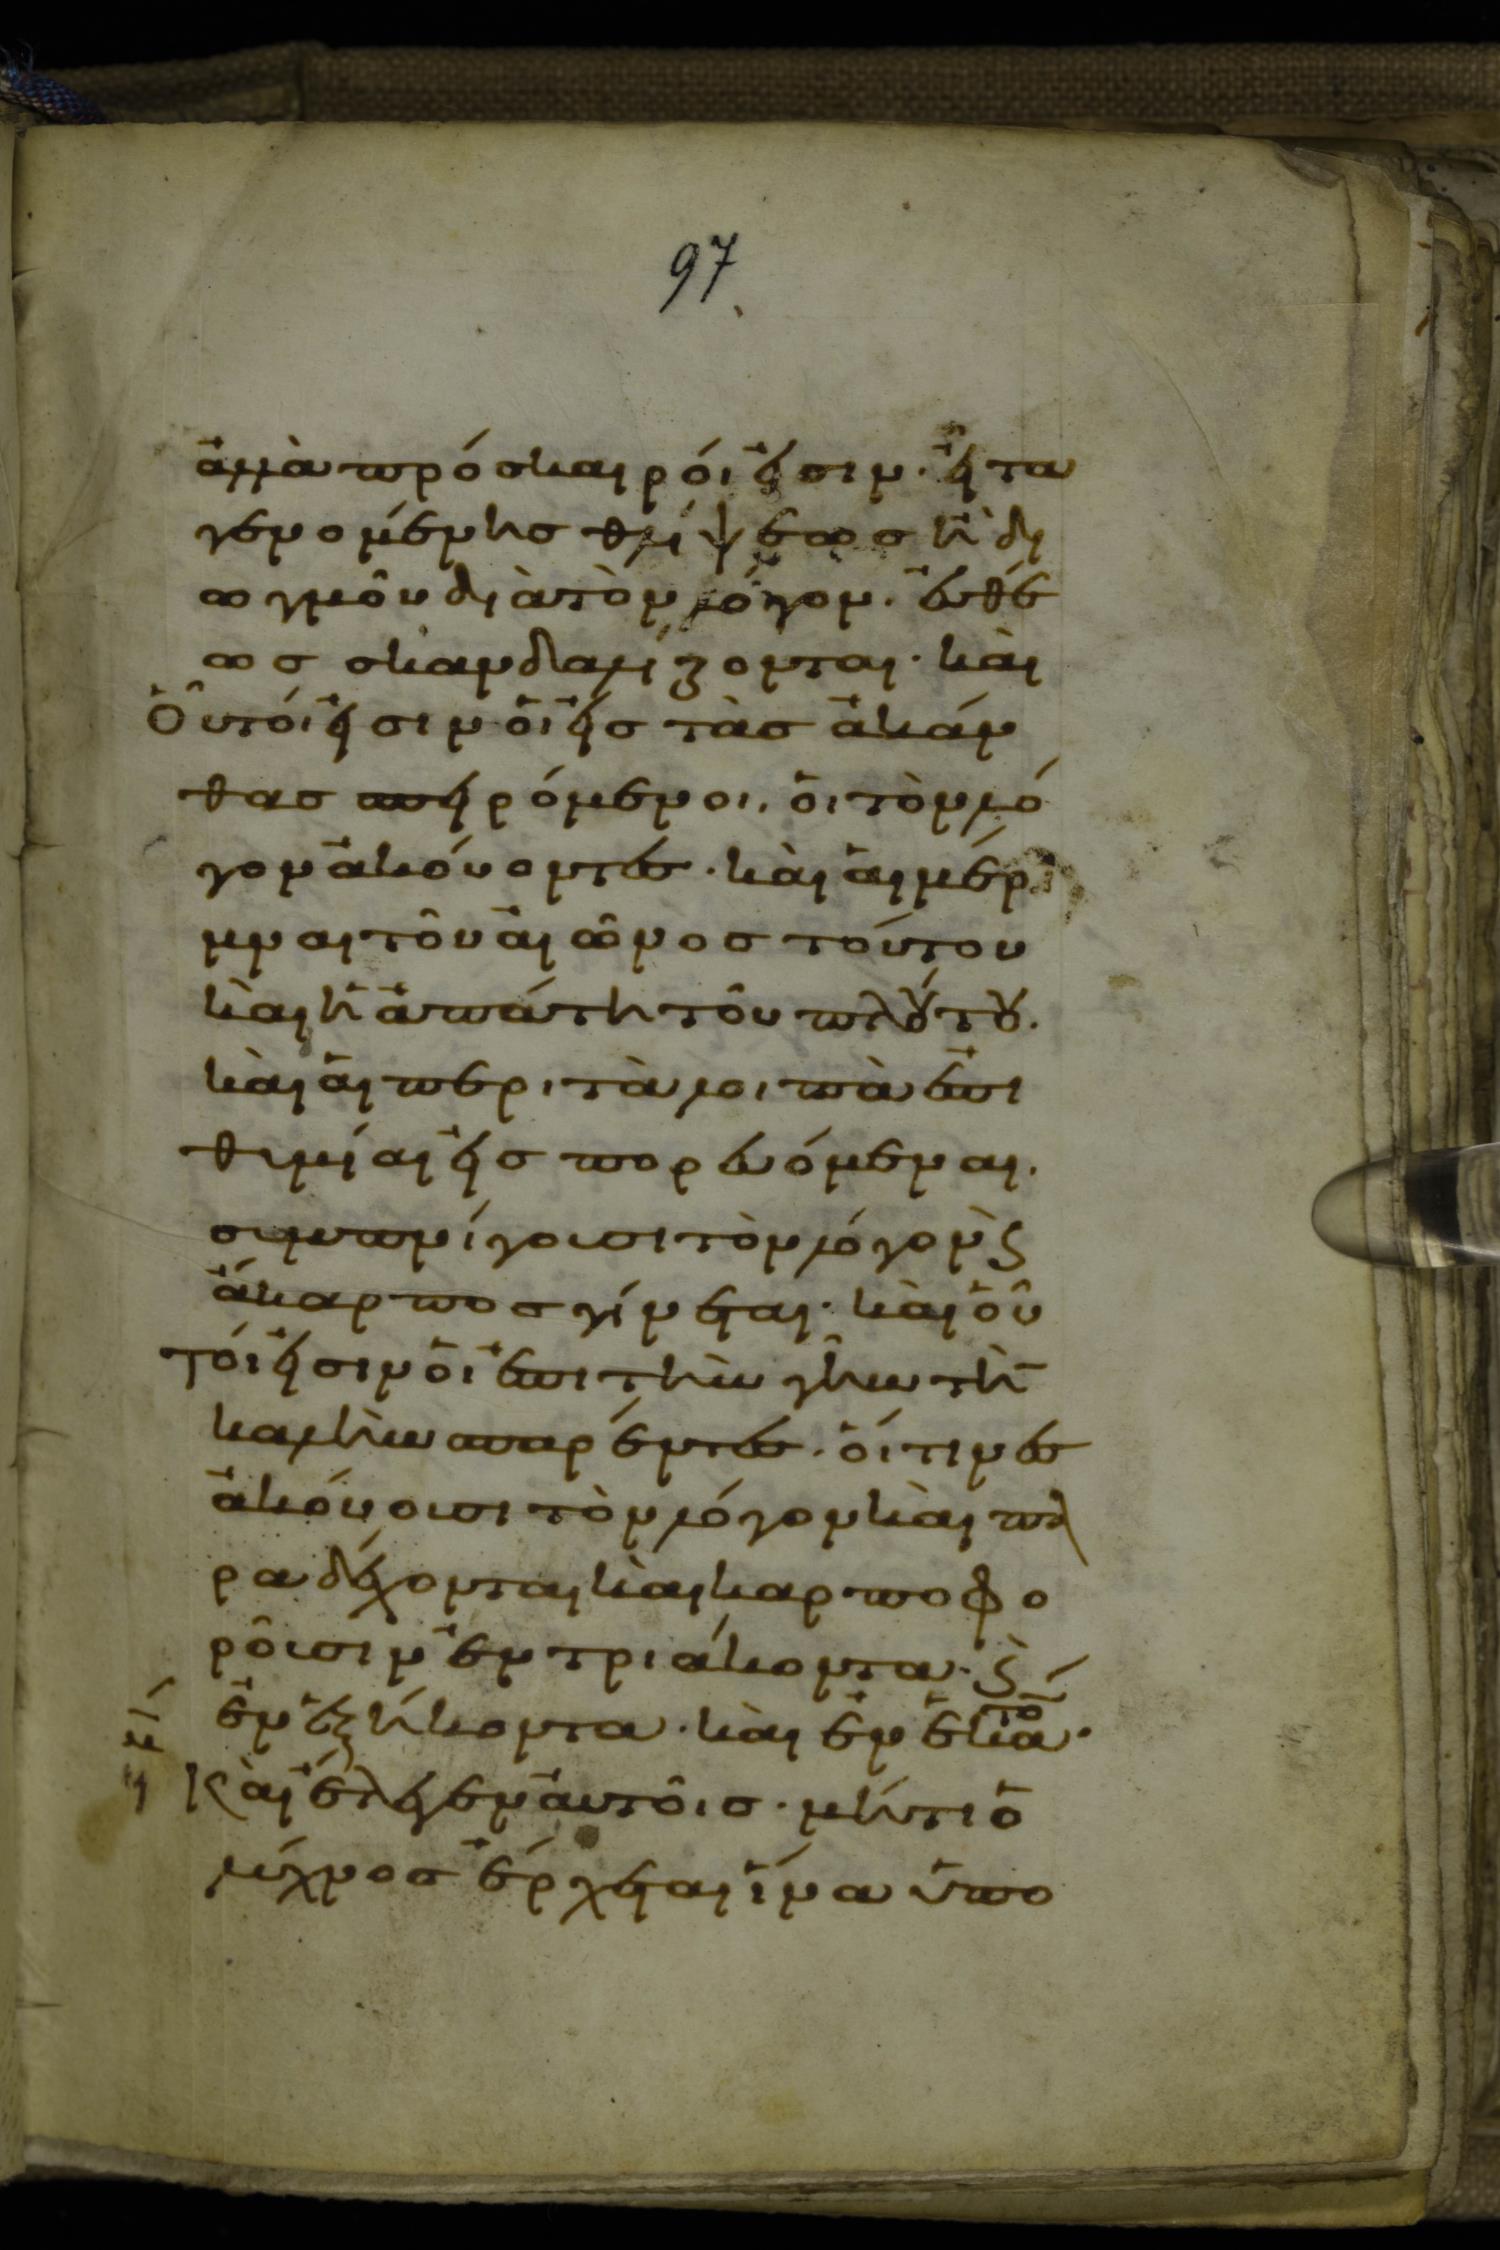 97
ἀλλὰ πρόσκαιρόι ἐισιν. ἐῖτα
γενομένης θλίψεως ἢ δι
ωγμοῦ διὰ τὸν λόγον. ἐυθέ
ως σκανδαλίζονται· καὶ
Ὁυτόι ἐισιν ὁι ἐις τὰς ἀκάν
θας σπειρόμενοι, ὁι τὸν λό
γον ἀκόυοντες· καὶ ἁι μέρι
μναι τοῦ ἀιῶνος τόυτου
καὶ ἡ ἀπάτη τοῦ πλούτου.
καὶ ἁι περι τὰ λοιπὰ ἐπι
θυμίαι ἐισπορευόμεναι.
συμπνίγουσι τὸν λόγον ϗ
ἄκαρπος γίνεται· καὶ οὗ
τόι ἐισιν ὁι ἐπι τὴν γῆν τὴν
καλὴν σπαρέντες. ὅιτινες
ἀκόυουσι τὸν λόγον καὶ πα
ραδέχονται καὶ καρποφο
ροῦσιν ἐν τριάκοντα· ϗ
ἐν ἑξήκοντα· καὶ ἐν ἑκατόν·
Καὶ ἔλεγεν ἀυτοῖς· μήτι ὁ
λύχνος ἔρχεται ἵνα ὑπο